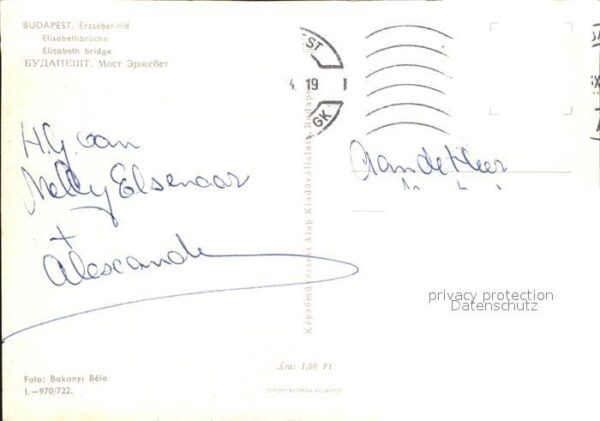 BUDAPEST. Erzsébet-híd
Elisabethbrücke
Elisabeth bridge
БУДАПЕШТ. Мост Эржебет
EST
4. 19
GK
H.G. van
Nelly Elsenaar
+
Alexander
Aan de Heer
Képzőművészeti Alap Kiadóvállalata, Budapest
privacy protection
Datenschutz
Ára: 1,50 Ft.
Foto: Bakonyi Béla
I.—970/722.
OFFSET-NYOMDA BUDAPEST